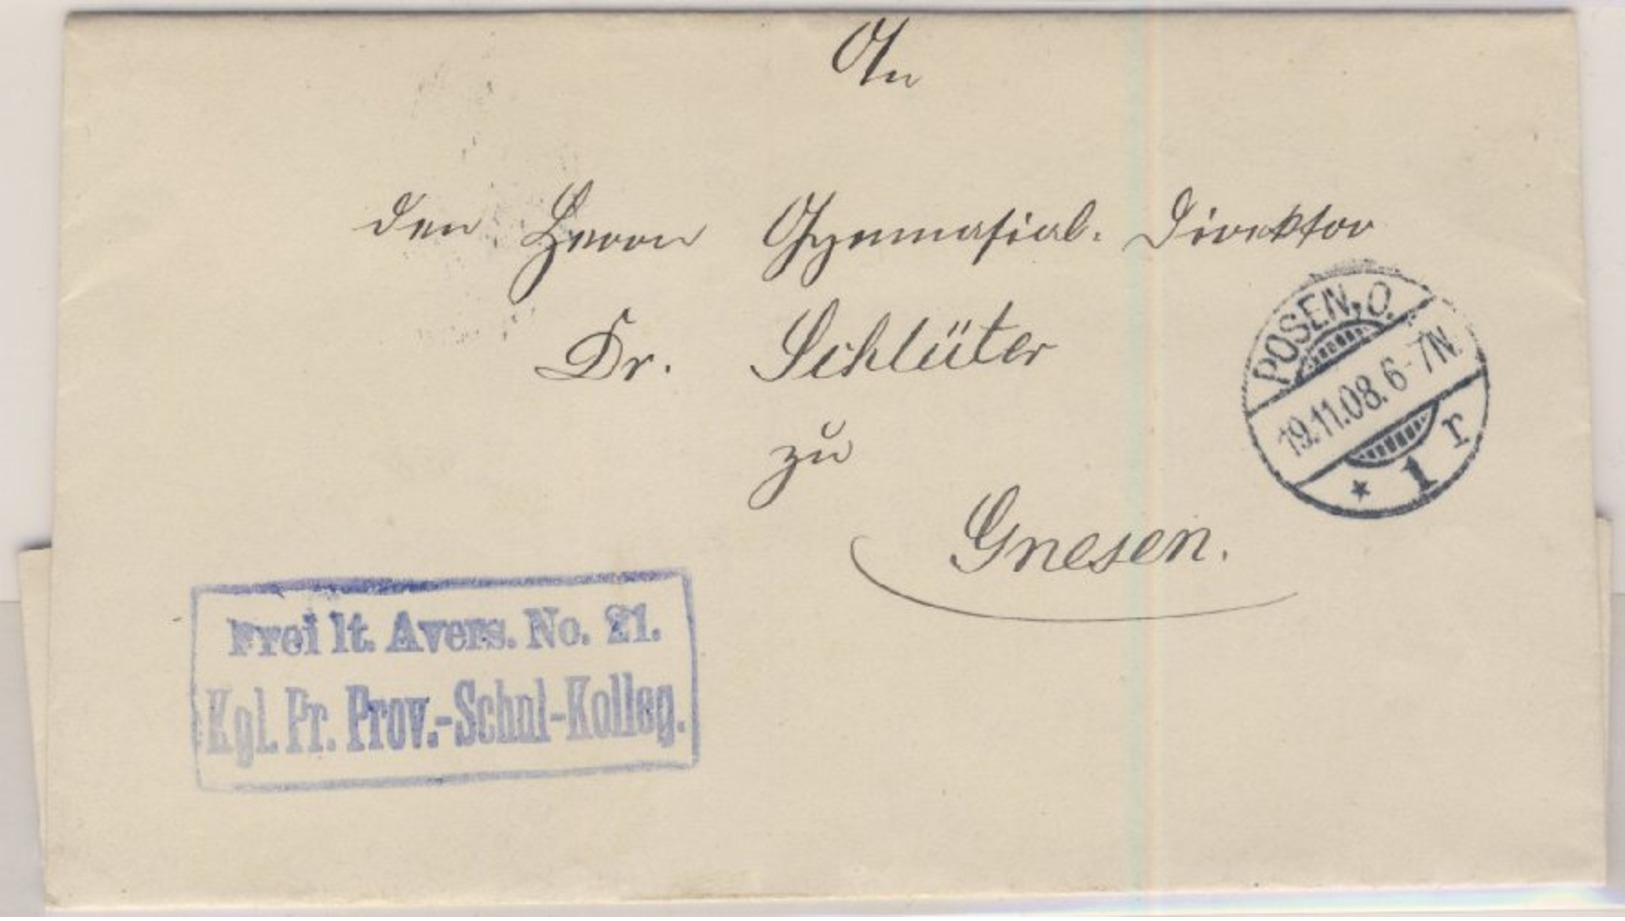 An
den Herrn Gymnasial-Direktor
Dr. Schlüter
zu
Gnesen.
POSEN, O.
19.11.08. 6-7N.
* 1 r
Frei lt. Avers. No. 21.
Kgl. Pr. Prov.-Schul-Kolleg.